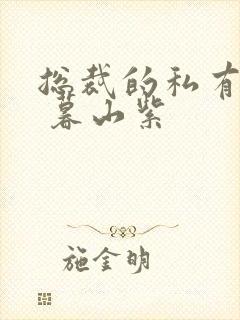 总裁的私有
暮山紫
施金明